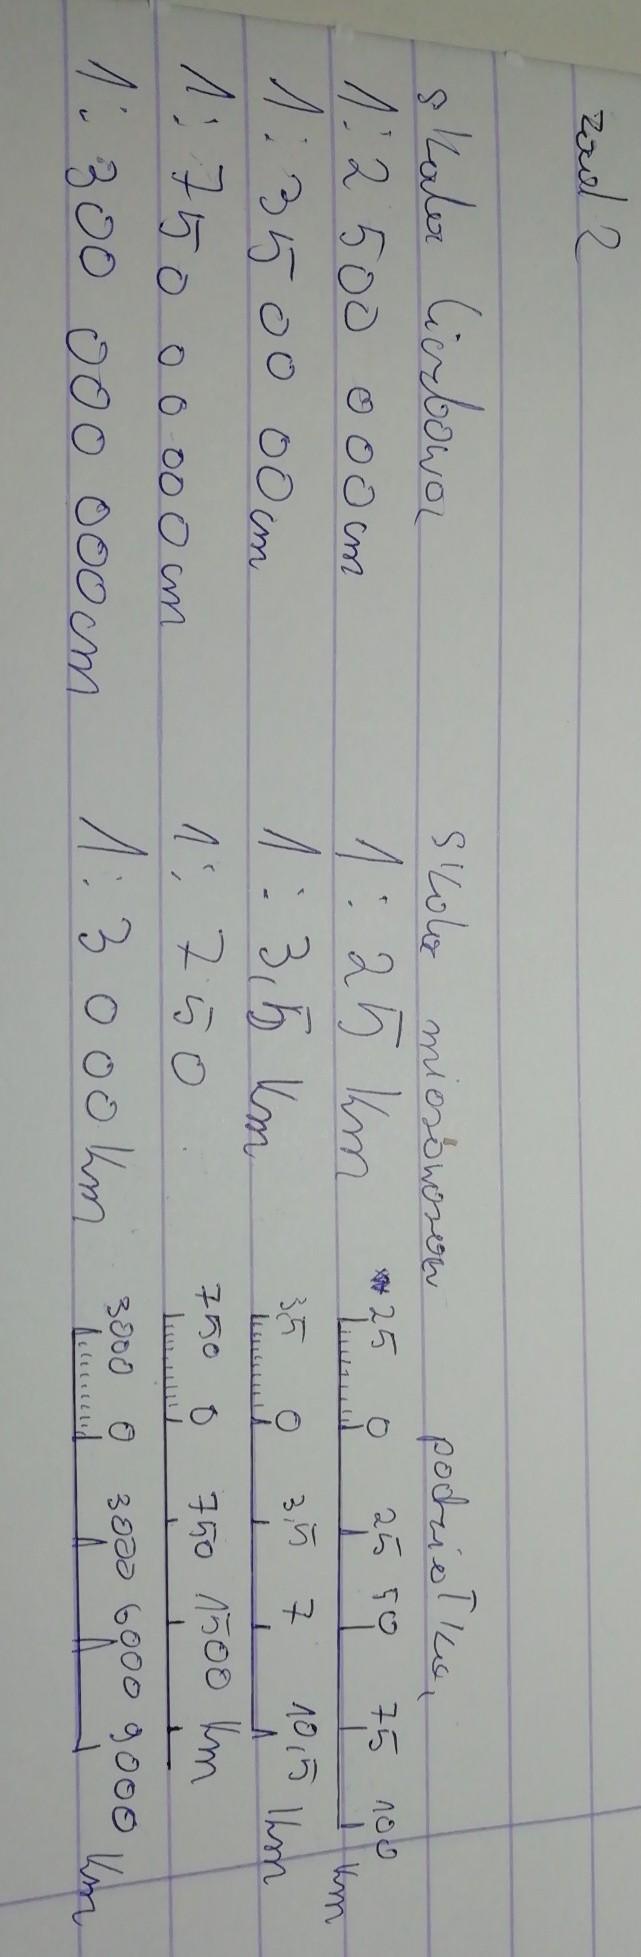 zad 2
skala liczbowa skala mianowana podziałka
1:2 500 000cm 1:25 km 25 0 25 50 75 100 km
1:3500 00cm 1:3,5 km 3,5 0 3,5 7 10,5 km
1:750 00 000cm 1:750 750 0 750 1500 km
1:300 000 000cm 1:3 000km 3000 0 3000 6000 9000 km